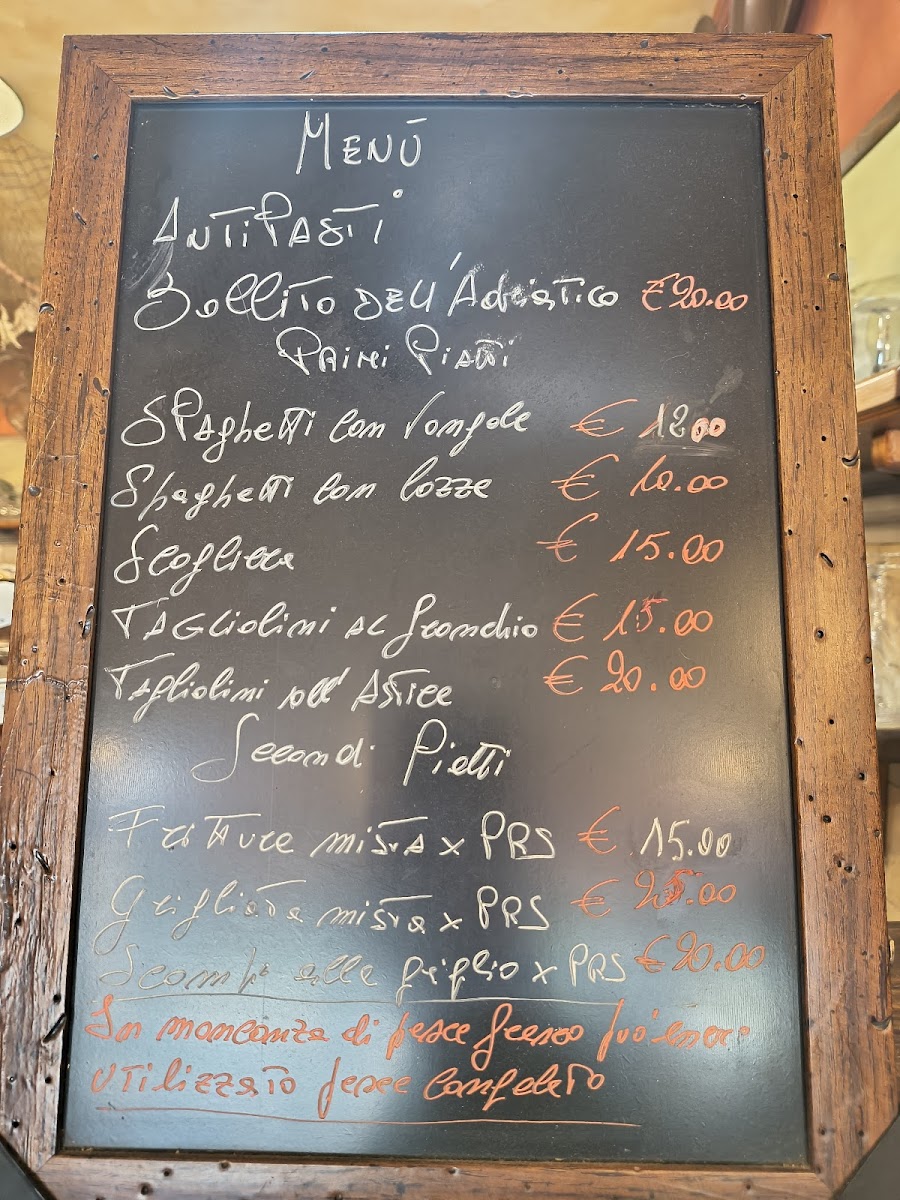 MENÙ
ANTIPASTI
Bollito DELL'Adriatico €20.00
PRIMI PIATTI
SPAghetti con Vongole € 12.00
Spaghetti con Cozze € 10.00
Scogliera € 15.00
TAGLIOLINI AL Granchio € 15.00
TAgliolini all' AStice € 20.00
Secondi Piatti
FriTTure miSTA x PRS € 15.00
GriglIATA miSTA x PRS € 25.00
Scampi alla griglia x PRS €20.00
In mancanza di pesce fresco può essere
UTILIZZATO pesce CongelATO